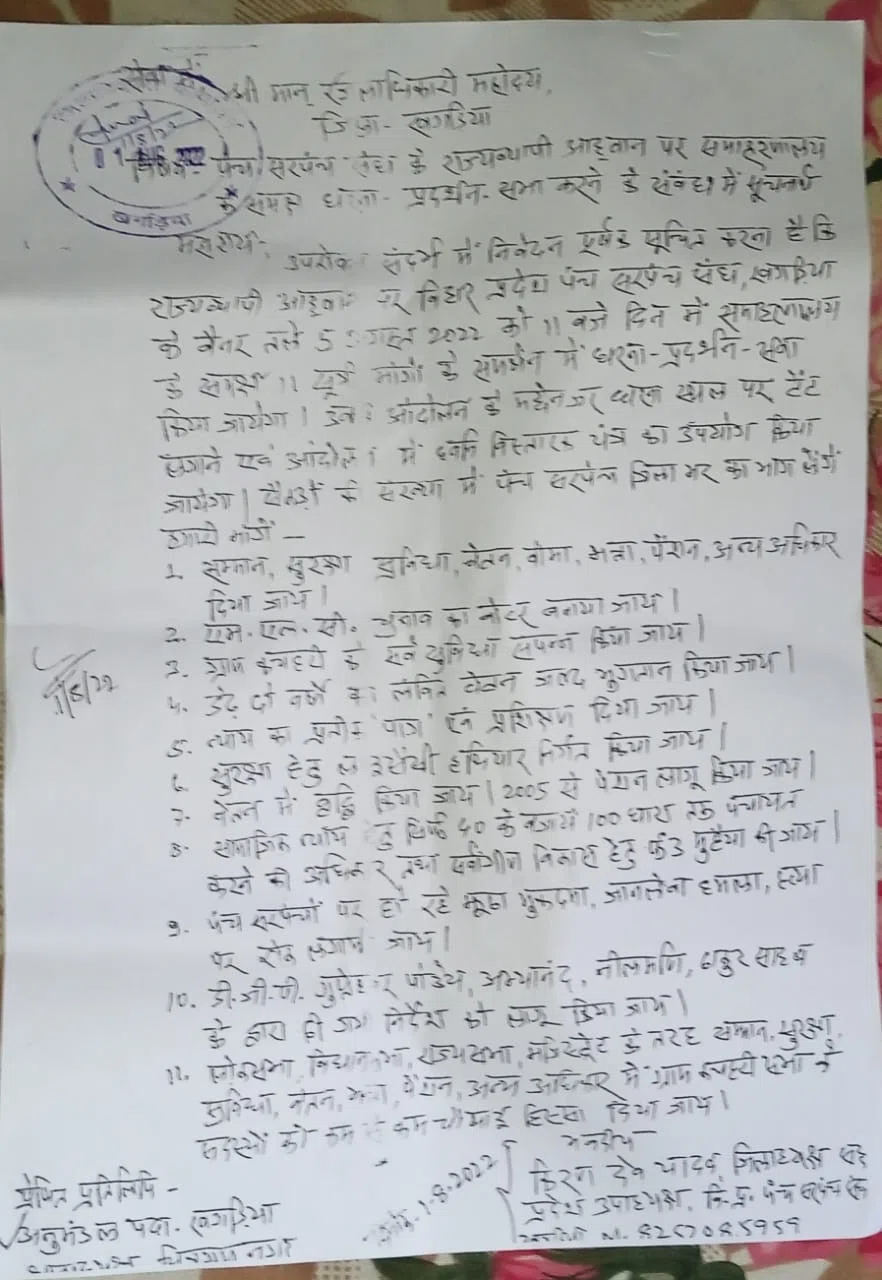 सेवा में,
श्री मान् जिलाधिकारी महोदय,
जिला - खगड़िया
विषय - पंच सरपंच संघ के राज्यव्यापी आह्वान पर समाहरणालय
के समक्ष धरना - प्रदर्शन - सभा करने के संबंध में सूचनार्थ
खगड़िया
महाशय,
उपरोक्त संदर्भ में निवेदन पूर्वक सूचित करना है कि
राज्यव्यापी आह्वान पर बिहार प्रदेश पंच सरपंच संघ, खगड़िया
के बैनर तले 5 अगस्त 2022 को 11 बजे दिन में समाहरणालय
के समक्ष 11 सूत्री मांगों के समर्थन में धरना - प्रदर्शन - सभा
किया जायेगा। उक्त आंदोलन के मद्देनजर धरना स्थल पर टेंट
लगाने एवं आंदोलन में ध्वनि विस्तारक यंत्र का उपयोग किया
जायेगा। सैकड़ों की संख्या में पंच सरपंच जिला भर का भाग लेंगे
हमारी मांगें —
1. सम्मान, सुरक्षा सुविधा, वेतन, बीमा, भत्ता, पेंशन, अन्य अधिकार
दिया जाय।
2. एम. एल. सी. चुनाव का वोटर बनाया जाय।
3. ग्राम कचहरी को सर्व सुविधा संपन्न किया जाय।
4. डेढ़ दो वर्षों का लंबित वेतन जल्द भुगतान किया जाय।
1/8/22
5. न्याय का प्रतीक पाग एवं प्रशिक्षण दिया जाय।
6. सुरक्षा हेतु लाइसेंसी हथियार निर्गत किया जाय।
7. वेतन में वृद्धि किया जाय। 2005 से पेंशन लागू किया जाय।
8. सामाजिक न्याय हेतु सिर्फ 40 के बजाय 100 धारा तक पंचायत
करने का अधिकार तथा सर्वांगीण विकास हेतु फंड मुहैया की जाय।
9. पंच सरपंचों पर हो रहे झूठा मुकदमा, जानलेवा हमला, हत्या
पर रोक लगाया जाय।
10. डी. जी. पी. गुप्तेश्वर पांडेय, अभयानंद, नीलमणि, ठाकुर साहब
के द्वारा दी गयी निर्देश को लागू किया जाय।
11. लोकसभा, विधानसभा, राज्यसभा, मजिस्ट्रेट के तरह सम्मान, सुरक्षा,
सुविधा, वेतन, भत्ता, पेंशन, अन्य अधिकार में ग्राम कचहरी सभा के
सदस्यों को कम से कम चौथाई हिस्सा दिया जाय।
भवदीय
किरण देव यादव, जिलाध्यक्ष सह
प्रदेश उपाध्यक्ष, बि. प्र. पंच सरपंच संघ
M. 8257085959
1.8.2022
प्रेषित प्रतिलिपि -
अनुमंडल पदा. खगड़िया